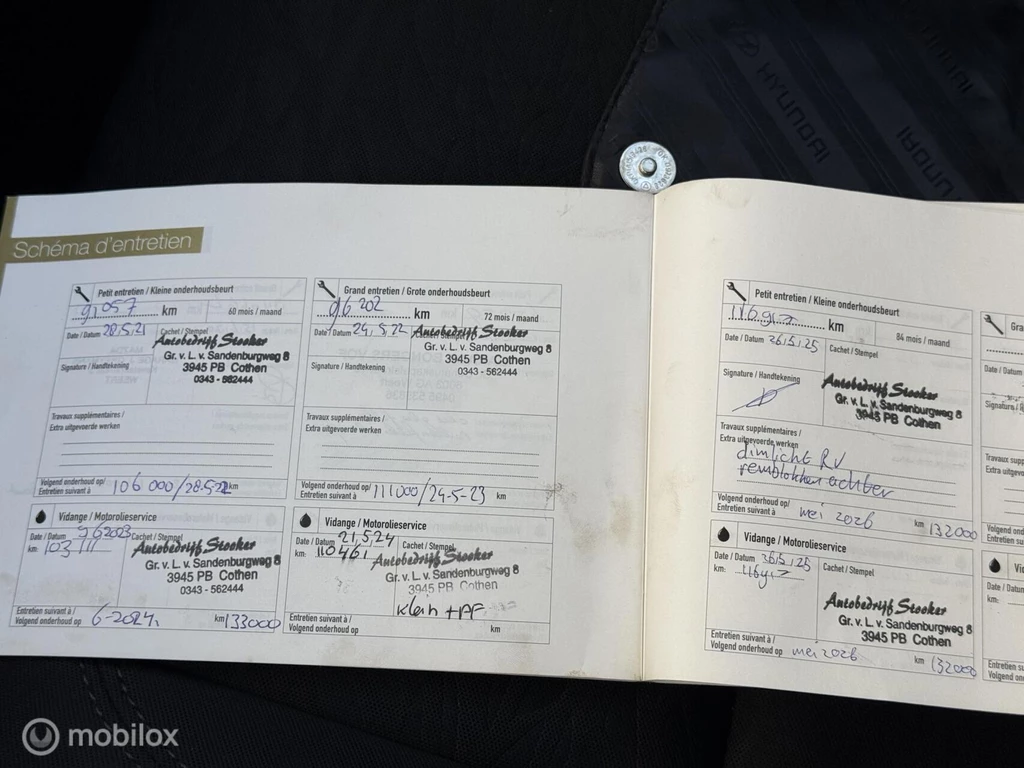 HYUNDAI
HYUNDAI
Schéma d'entretien
Petit entretien / Kleine onderhoudsbeurt
91057 km
60 mois / maand
Date / Datum 28.5.21
Cachet / Stempel
Autobedrijf Stooker
Gr. v. L. v. Sandenburgweg 8
3945 PB Cothen
0343 - 562444
Signature / Handtekening
Travaux supplémentaires /
Extra uitgevoerde werken
Volgend onderhoud op/
Entretien suivant à 106 000/28.5.22 km
Grand entretien / Grote onderhoudsbeurt
96 202 km
72 mois / maand
Date / Datum 24.5.22
Autobedrijf Stooker
Gr. v. L. v. Sandenburgweg 8
3945 PB Cothen
0343 - 562444
Signature / Handtekening
Travaux supplémentaires /
Extra uitgevoerde werken
Volgend onderhoud op/
Entretien suivant à 111000/24-5-23 km
Vidange / Motorolieservice
Date / Datum 9 6 2023
Cachet / Stempel
km: 103 111
Autobedrijf Stooker
Gr. v. L. v. Sandenburgweg 8
3945 PB Cothen
0343 - 562444
Entretien suivant à /
Volgend onderhoud op 6-2024. km 133000
Vidange / Motorolieservice
Date / Datum 21.5.24
Cachet / Stempel
km: 110461
Autobedrijf Stooker
Gr. v. L. v. Sandenburgweg 8
3945 PB Cothen
Klein +PF
Entretien suivant à /
Volgend onderhoud op km
Petit entretien / Kleine onderhoudsbeurt
km
84 mois / maand
Date / Datum 26.5.25
Cachet / Stempel
Signature / Handtekening
Autobedrijf Stooker
Gr. v. L. v. Sandenburgweg 8
3945 PB Cothen
Travaux supplémentaires /
Extra uitgevoerde werken
dimlicht RV
remblokken achter
Volgend onderhoud op/
Entretien suivant à mei 2026 km 132000
Vidange / Motorolieservice
Date / Datum 26.5.25
Cachet / Stempel
km:
Autobedrijf Stooker
Gr. v. L. v. Sandenburgweg 8
3945 PB Cothen
Entretien suivant à /
Volgend onderhoud op mei 2026 km 132000
Grand
Date / Datum
Signature /
Travaux
Extra uitgevoerde
Volgend onder
Entretien suivant
Vid
Date / Datum
km:
Entretien su
Volgend ond
mobilox